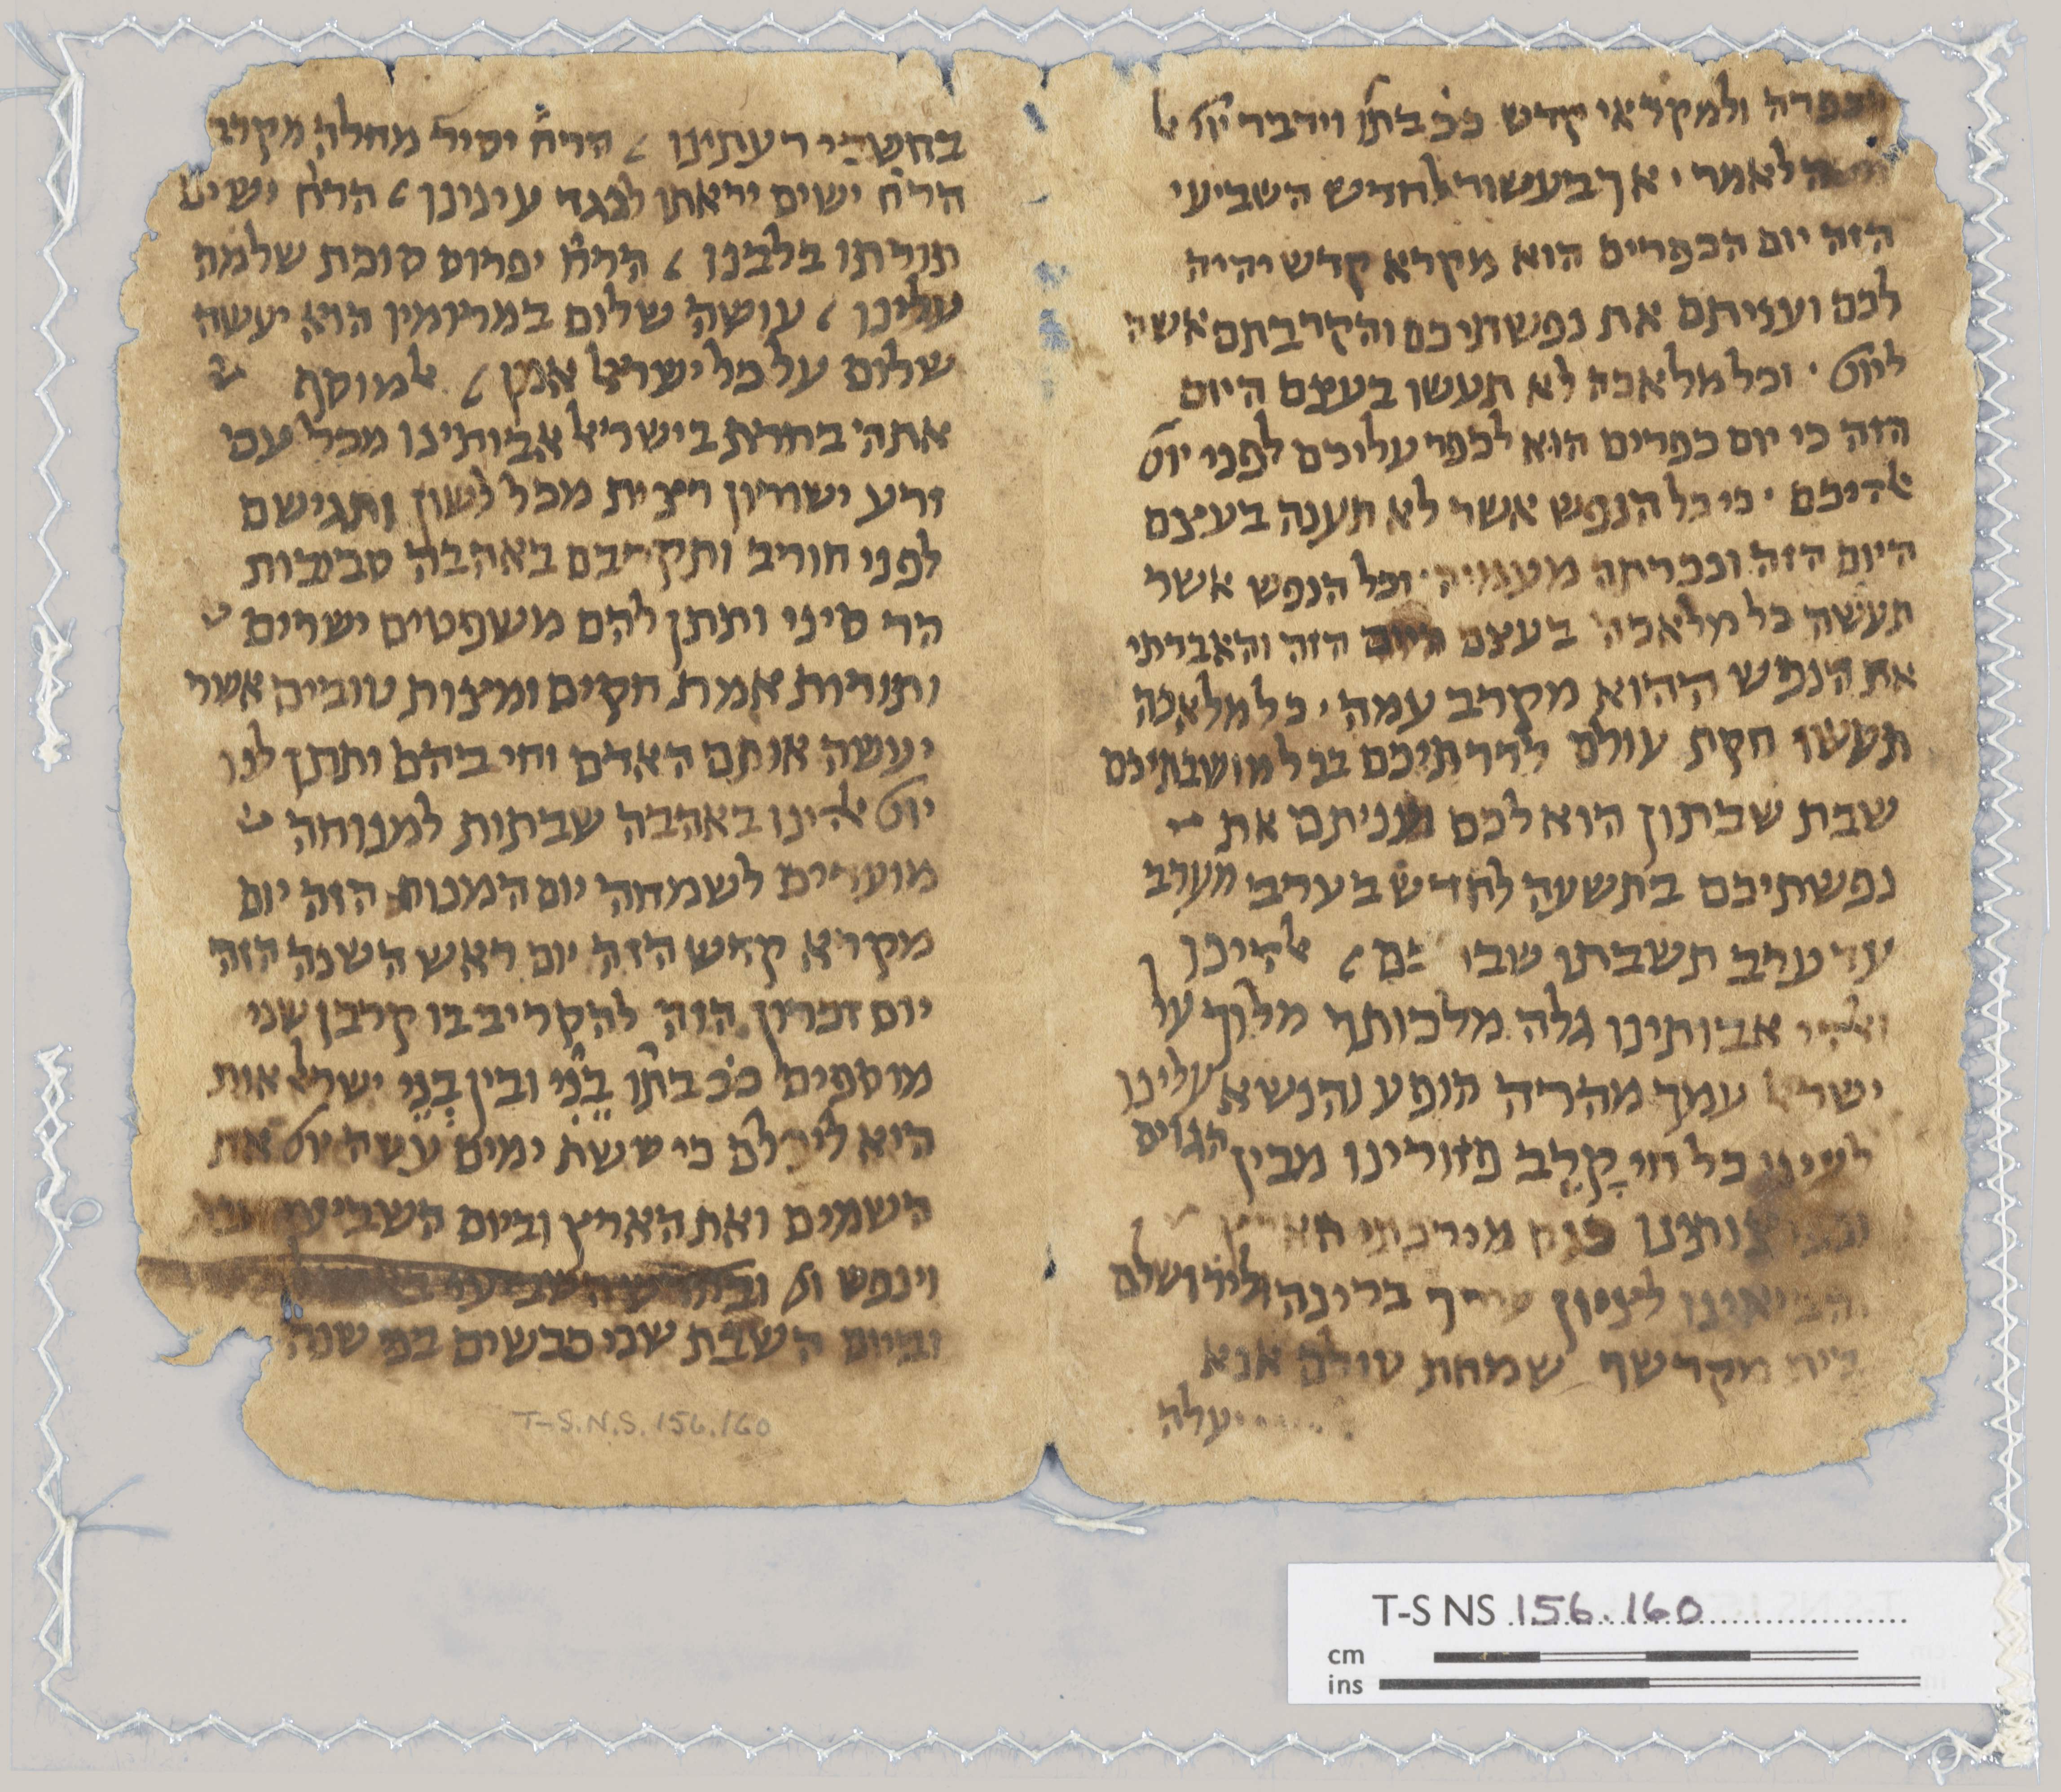 לכפרה ולמקראי קדש ככ בתו וידבר יוי אל
משה לאמר ׳ אך בעשור לחדש השביעי
הזה יום הכפרים הוא מקרא קדש יהיה
לכם ועניתם את נפשתיכם והקרבתם אשה
ליוי ׳ וכל מלאכה לא תעשו בעצם היום
הזה כי יום כפרים הוא לכפר עליכם לפני יוי
אלהיכם ׳ כי כל הנפש אשר לא תענה בעצם
היום הזה ונכרתה מעמיה ׳ וכל הנפש אשר
תעשה כל מלאכה בעצם היום הזה והאבדתי
את הנפש ההוא מקרב עמה ׳ כל מלאכה
תעשו חקת עולם לדרתיכם בכל מושבתיכם
שבת שבתון הוא לכם ועניתם את
נפשתיכם בתשעה לחדש בערב מערב
עד ערב תשבתו שבו כם / אלהינו
ואלהי אבותינו גלה מלכותך מלוך על
ישראל עמך מהרה הופע והנשא עלינו
לעיני כל חי קָרֵב פזורינו מבין הגוים
ונפוצותינו כנס מירכתי הארץ
והביאינו לציון עירך ברינה ולירושלם
בית מקדשך שמחת עולם אנא
יעלה
בחשכי דעתינו / הרח יסיר מחלה מקרב
הרח ישים יראתו לנגד עינינו / הרח ישים
תורתו בלבנו / הרח יפרוס סוכת שלמה
עלינו / עושה שלום במרומיו הוא יעשה
שלום על כל ישראל אמן / אלמוסף
אתה בחרת בישראל אבותינו מכל עם
זרע ישורון רצית מכל לשון ותגישם
לפני חוריב ותקרבם באהבה סביבות
הר סיני ותתן להם משפטים ישרים
ותורות אמת חקים ומצות טובים אשר
יעשה אותם האדם וחי בהם ותתן לנו
יוי אלהינו באהבה שבתות למנוחה
מועדים לשמחה יום המנוח הזה יום
מקרא קדש הזה יום ראש השנה הזה
יום זכרון הזה להקריב בו קרבן שני
מוספים ככ בתו בֵּנִי ובין בְּנֵי ישראל אות
היא לעולם כי ששת ימים עָשָׂה יוי את
השמים ואת הארץ וביום השביעי
וינפש ו ובחדש השביעי
וביום השבת שני כבשים בני שנה
T-S.N.S. 156.160
T-S NS 156.160
cm
ins